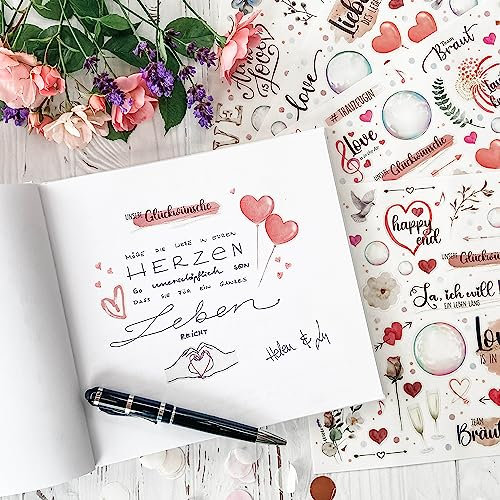 Liebe
TEAM
Braut
love
LOVE
#TRAUZEUGIN
Love
is in the Air
UNSERE Glückwünsche
happy
end
UNSERE Glückwünsche
Ja, ich will!
EIN LEBEN LANG
Love
IS IN
TEAM
Braut
UNSERE Glückwünsche
MÖGE DIE LIEBE IN EUREN
HERZEN
SO unerschöpflich SEIN
DASS SIE FÜR EIN GANZES
Leben
REICHT